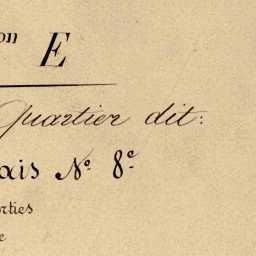 on E
Quartier dit:
ais Nº 8e
rties
e